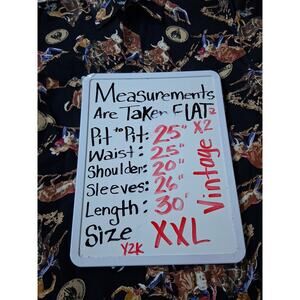 Measurements
Are Taken FLAT
Pit to Pit: 25" X2
Waist: 25"
Shoulder: 20"
Sleeves: 26"
Length: 30"
Vintage
Size XXL
Y2K